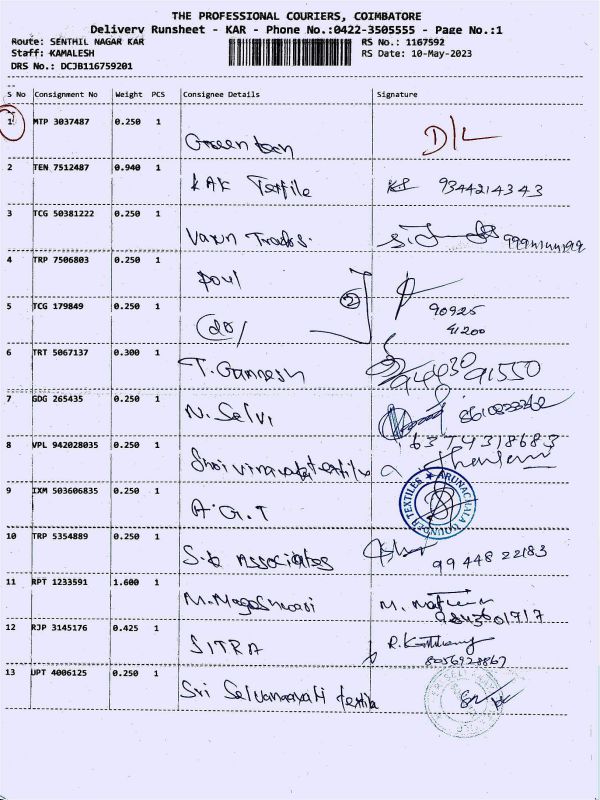 THE PROFESSIONAL COURIERS, COIMBATORE
Delivery Runsheet - KAR - Phone No.:0422-3505555 - Page No.:1
Route: SENTHIL NAGAR KAR RS No.: 1167592
Staff: KAMALESH RS Date: 10-May-2023
DRS No.: DCJB116759201
S No Consignment No Weight PCS Consignee Details Signature
1 MTP 3037487 0.250 1
Green D/L
2 TEN 7512487 0.940 1
KAK Textile 9344214343
3 TCG 50381222 0.250 1
Varun Trados.
4 TRP 7506803 0.250 1
Poul 2
5 TCG 179849 0.250 1 90925
(do) 41200
6 TRT 5067137 0.300 1
T. Gannesh 94430 91550
7 GDG 265435 0.250 1
N. Selvi
6374318683
8 VPL 942028035 0.250 1
9 IXM 503606835 0.250 1 ARUNACHALA GOUNDER TEXTILES
A.G.T
10 TRP 5354889 0.250 1
Associates 99448 22183
11 RPT 1233591 1.600 1
M. Mageshwari M.
12 RJP 3145176 0.425 1
SITRA R.
8056928867
13 UPT 4006125 0.250 1
Sri textile